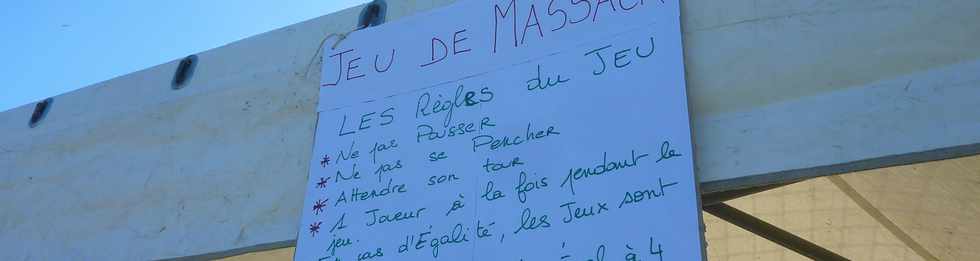 JEU DE MASSACR
LES Règles du JEU
* Ne pas Pousser
* Ne pas se Pencher
* Attendre son tour
* 1 Joueur à la fois pendant le
jeu.
En cas d'Égalité, les Jeux sont
à 4